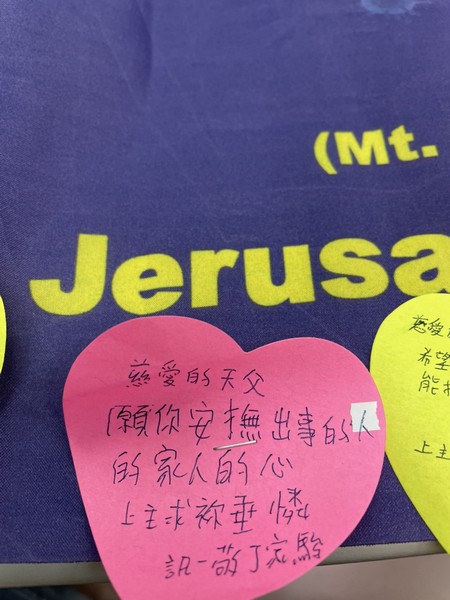 (Mt.
Jerusa
慈愛的天父
願你安撫出事的人
的家人的心
上主求祢垂憐
慈愛
希望
能
上主